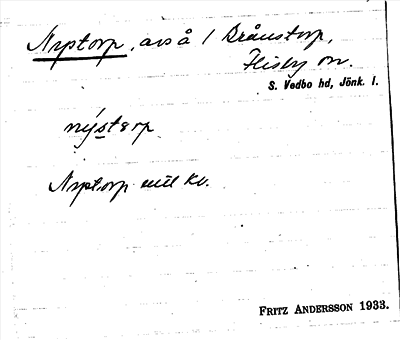 Nyptorp, avs å / Brånstorp,
Flisby sn.
S. Vedbo hd, Jönk. l.
nýstɛrp
Nyptorp enl kv.
FRITZ ANDERSSON 1933.